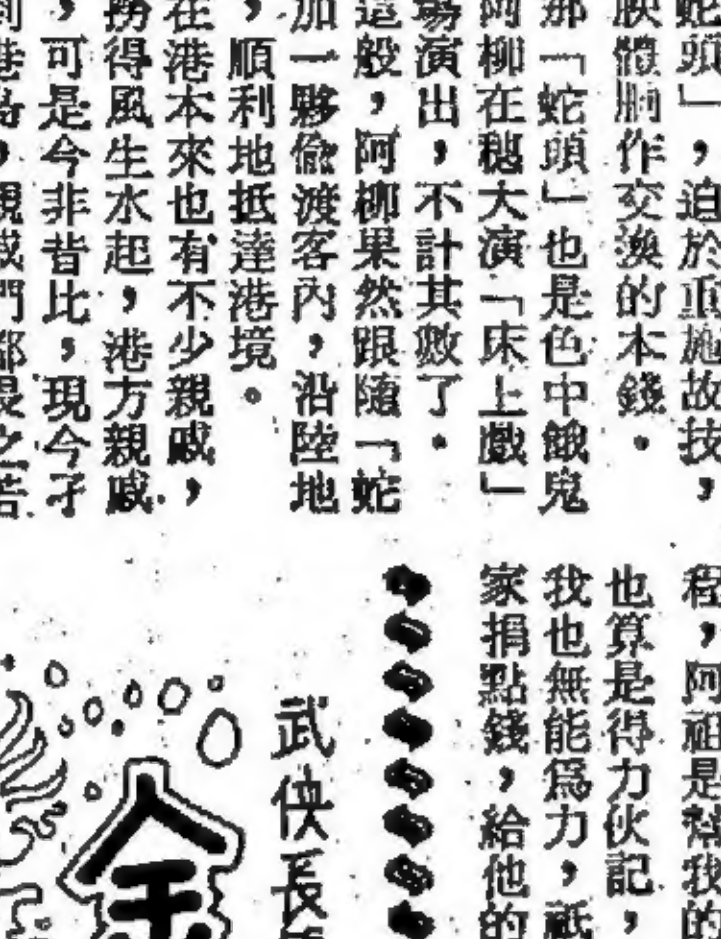 蛇頭」，迫於重施故技，
胴作交換的本錢。
那「蛇頭」也是色中餓鬼
阿柳在穗大演「床上戲」
場演出，不計其數了。
這般，阿柳果然跟隨「蛇
加一夥偷渡客內，沿陸地
，順利地抵達港境。
在港本來也有不少親戚，
撈得風生水起，港方親戚
，可是今非昔比，現今孑
，親戚們都
程，阿祖是幫我的
也算是得力伙記，
我也無能為力，祇
家捐點錢，給他的
武俠長
金